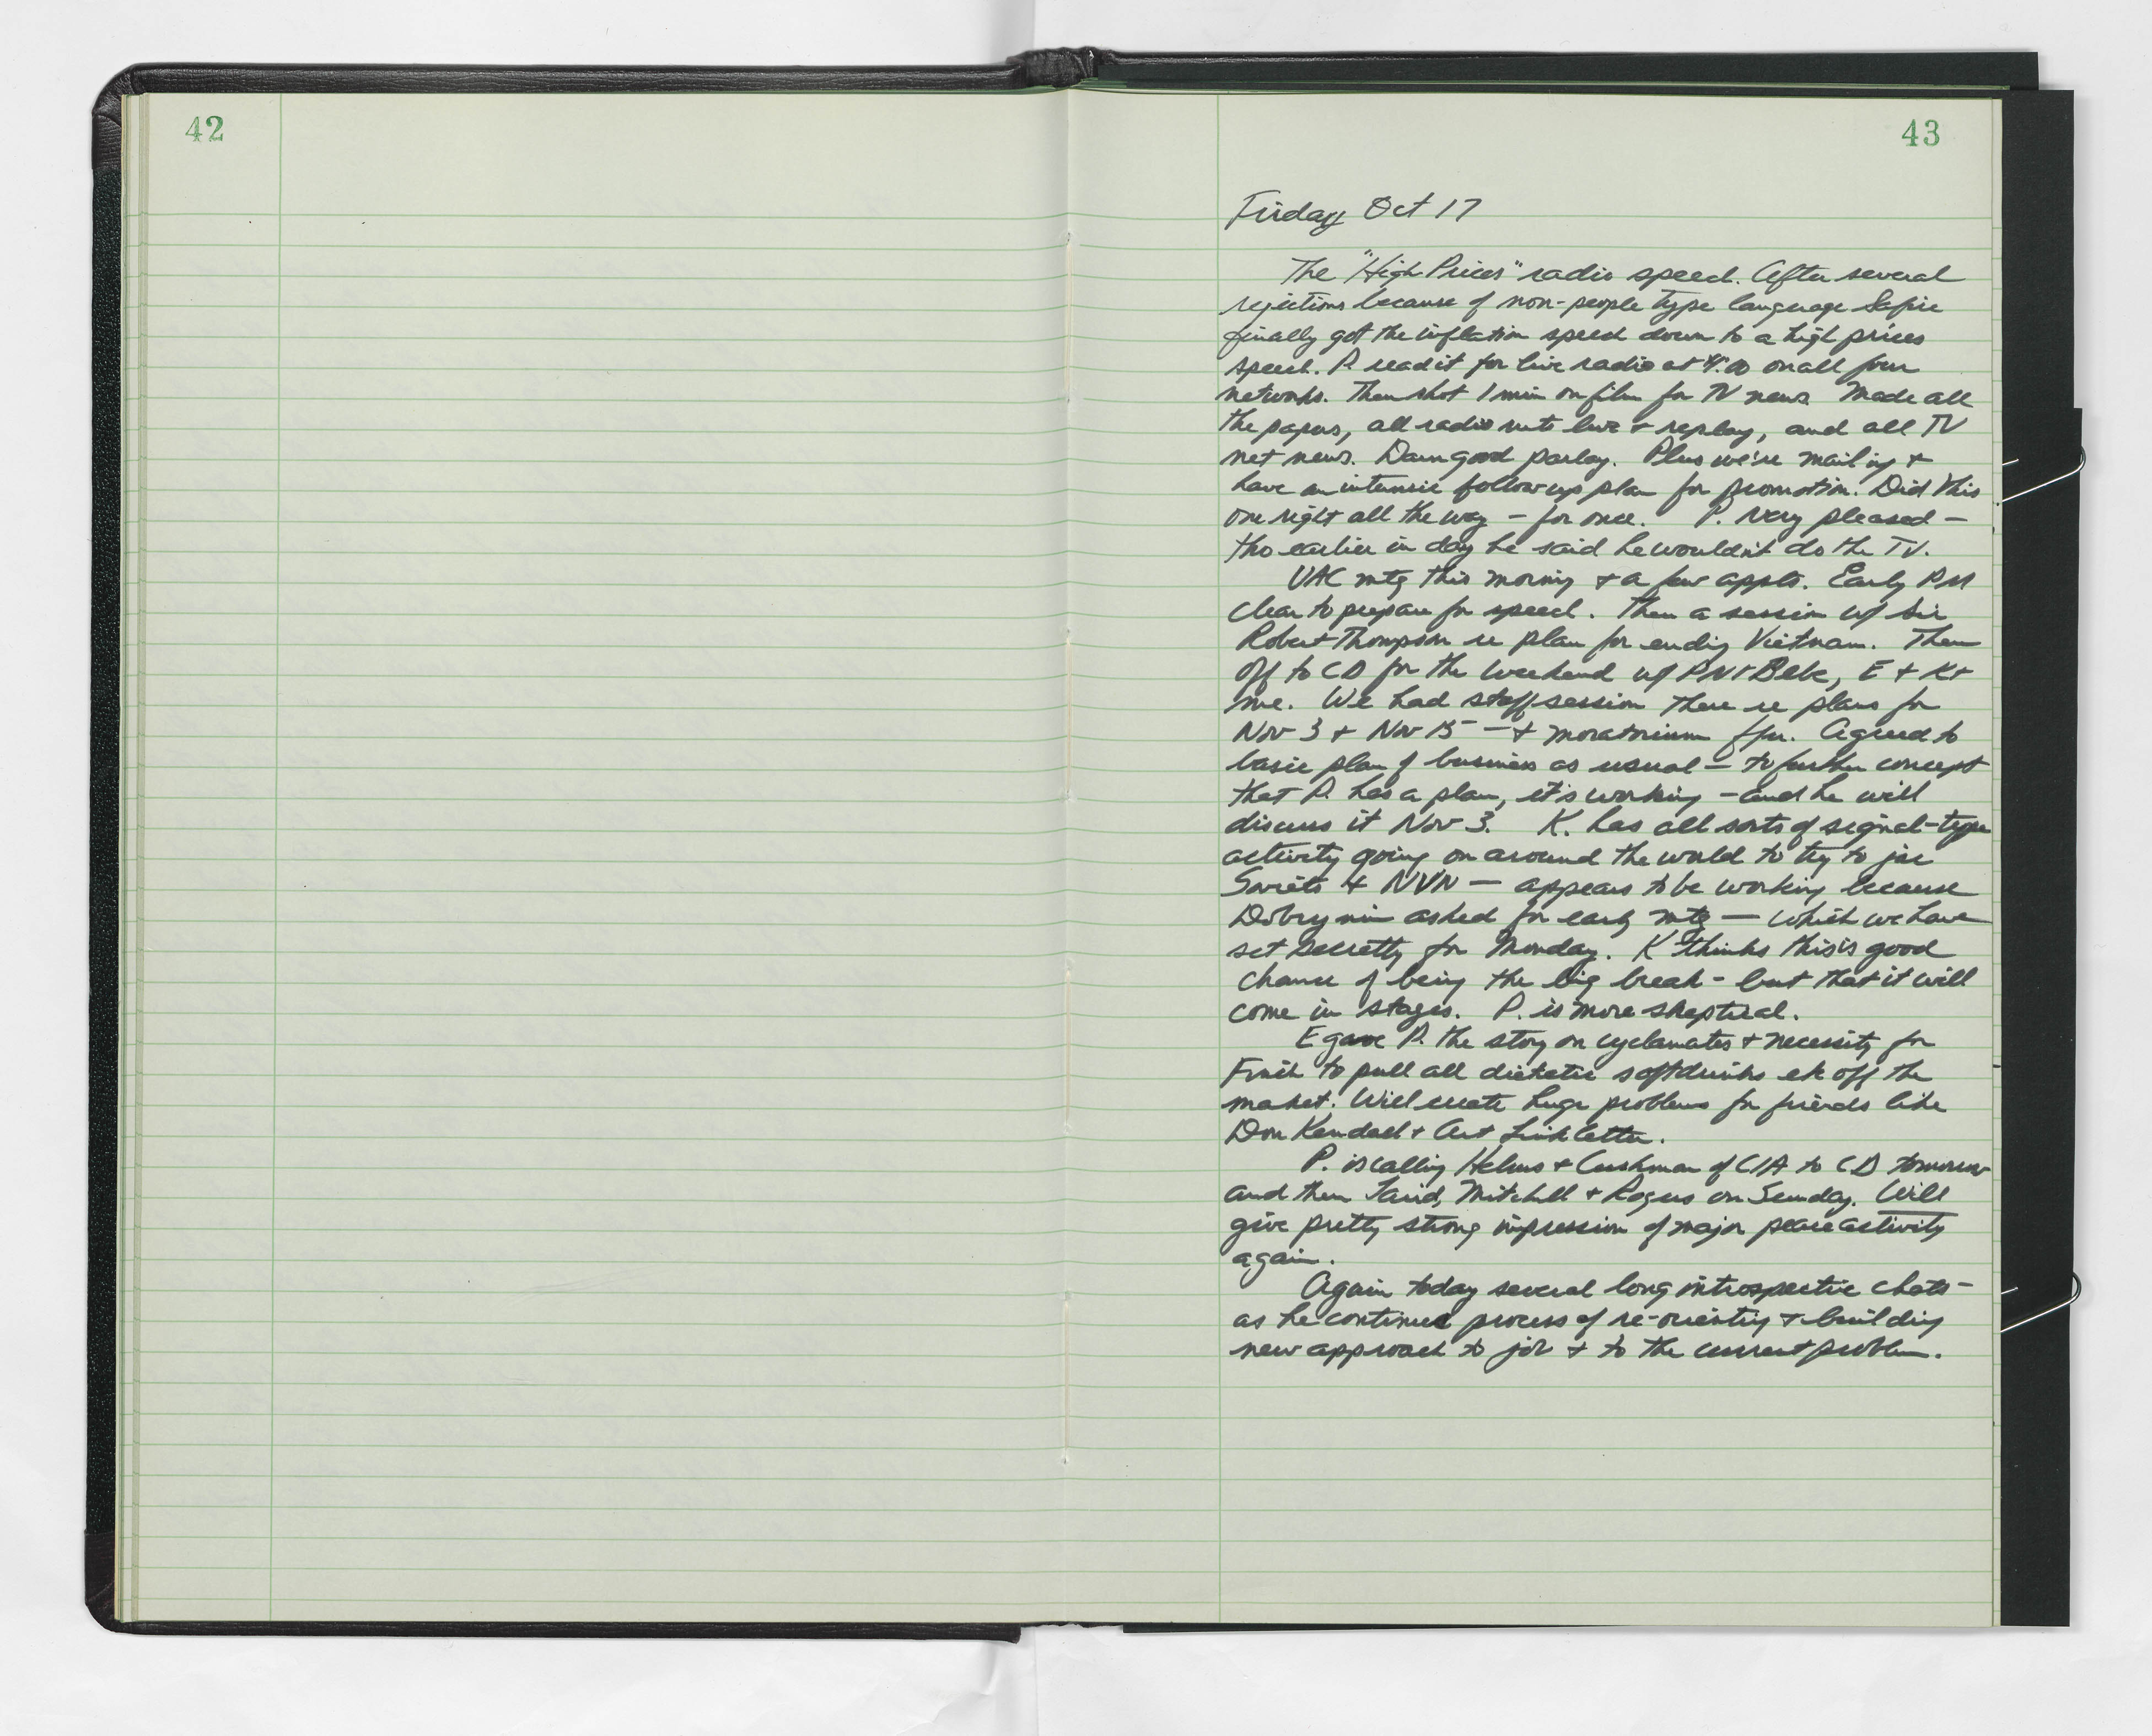 42
43
Friday Oct 17
The "High Prices" radio speech. After several
rejections because of non-people type language Safire
finally got the inflation speech down to a high prices
speech. P. read it for live radio at 4:00 on all four
networks. Then shot 1 min on film for TV news. Made all
the papers, all radio nets live + replay, and all TV
net news. Damn good parlay. Plus we're mailing +
have an intensive follow up plan for promotion. Did this
one right all the way - for once. P. very pleased -
tho earlier in day he said he wouldn't do the TV.
UAC mtg this morning + a few appts. Early PM
clear to prepare for speech. Then a session w/ Sir
Robert Thompson re plan for ending Vietnam. Then
off to CD for the weekend w/ PN + Bebe, E + K +
me. We had staff session there re plans for
Nov 3 + Nov 15 - + moratorium Agreed to
basic plan of business as usual - to further concept
that P. has a plan, it's working - and he will
discuss it Nov 3. K. has all sorts of signal-type
activity going on around the world to try to jar
Soviets + NVN - appears to be working because
Dobrynin asked for early mtg - which we have
set secretly for Monday. K thinks this is good
chance of being the big break - but that it will
come in stages. P. is more skeptical.
E gave P. the story on cyclamates + necessity for
Finch to pull all dietetic soft drinks etc off the
market. Will create huge problems for friends like
Don Kendall + Art Linkletter.
P. is calling Helms + Cushman of CIA to CD tomorrow
and then Laird, Mitchell + Rogers on Sunday. Will
give pretty strong impression of major peace activity
again.
Again today several long introspective chats -
as he continued process of re-orienting + building
new approach to job + to the current problem.